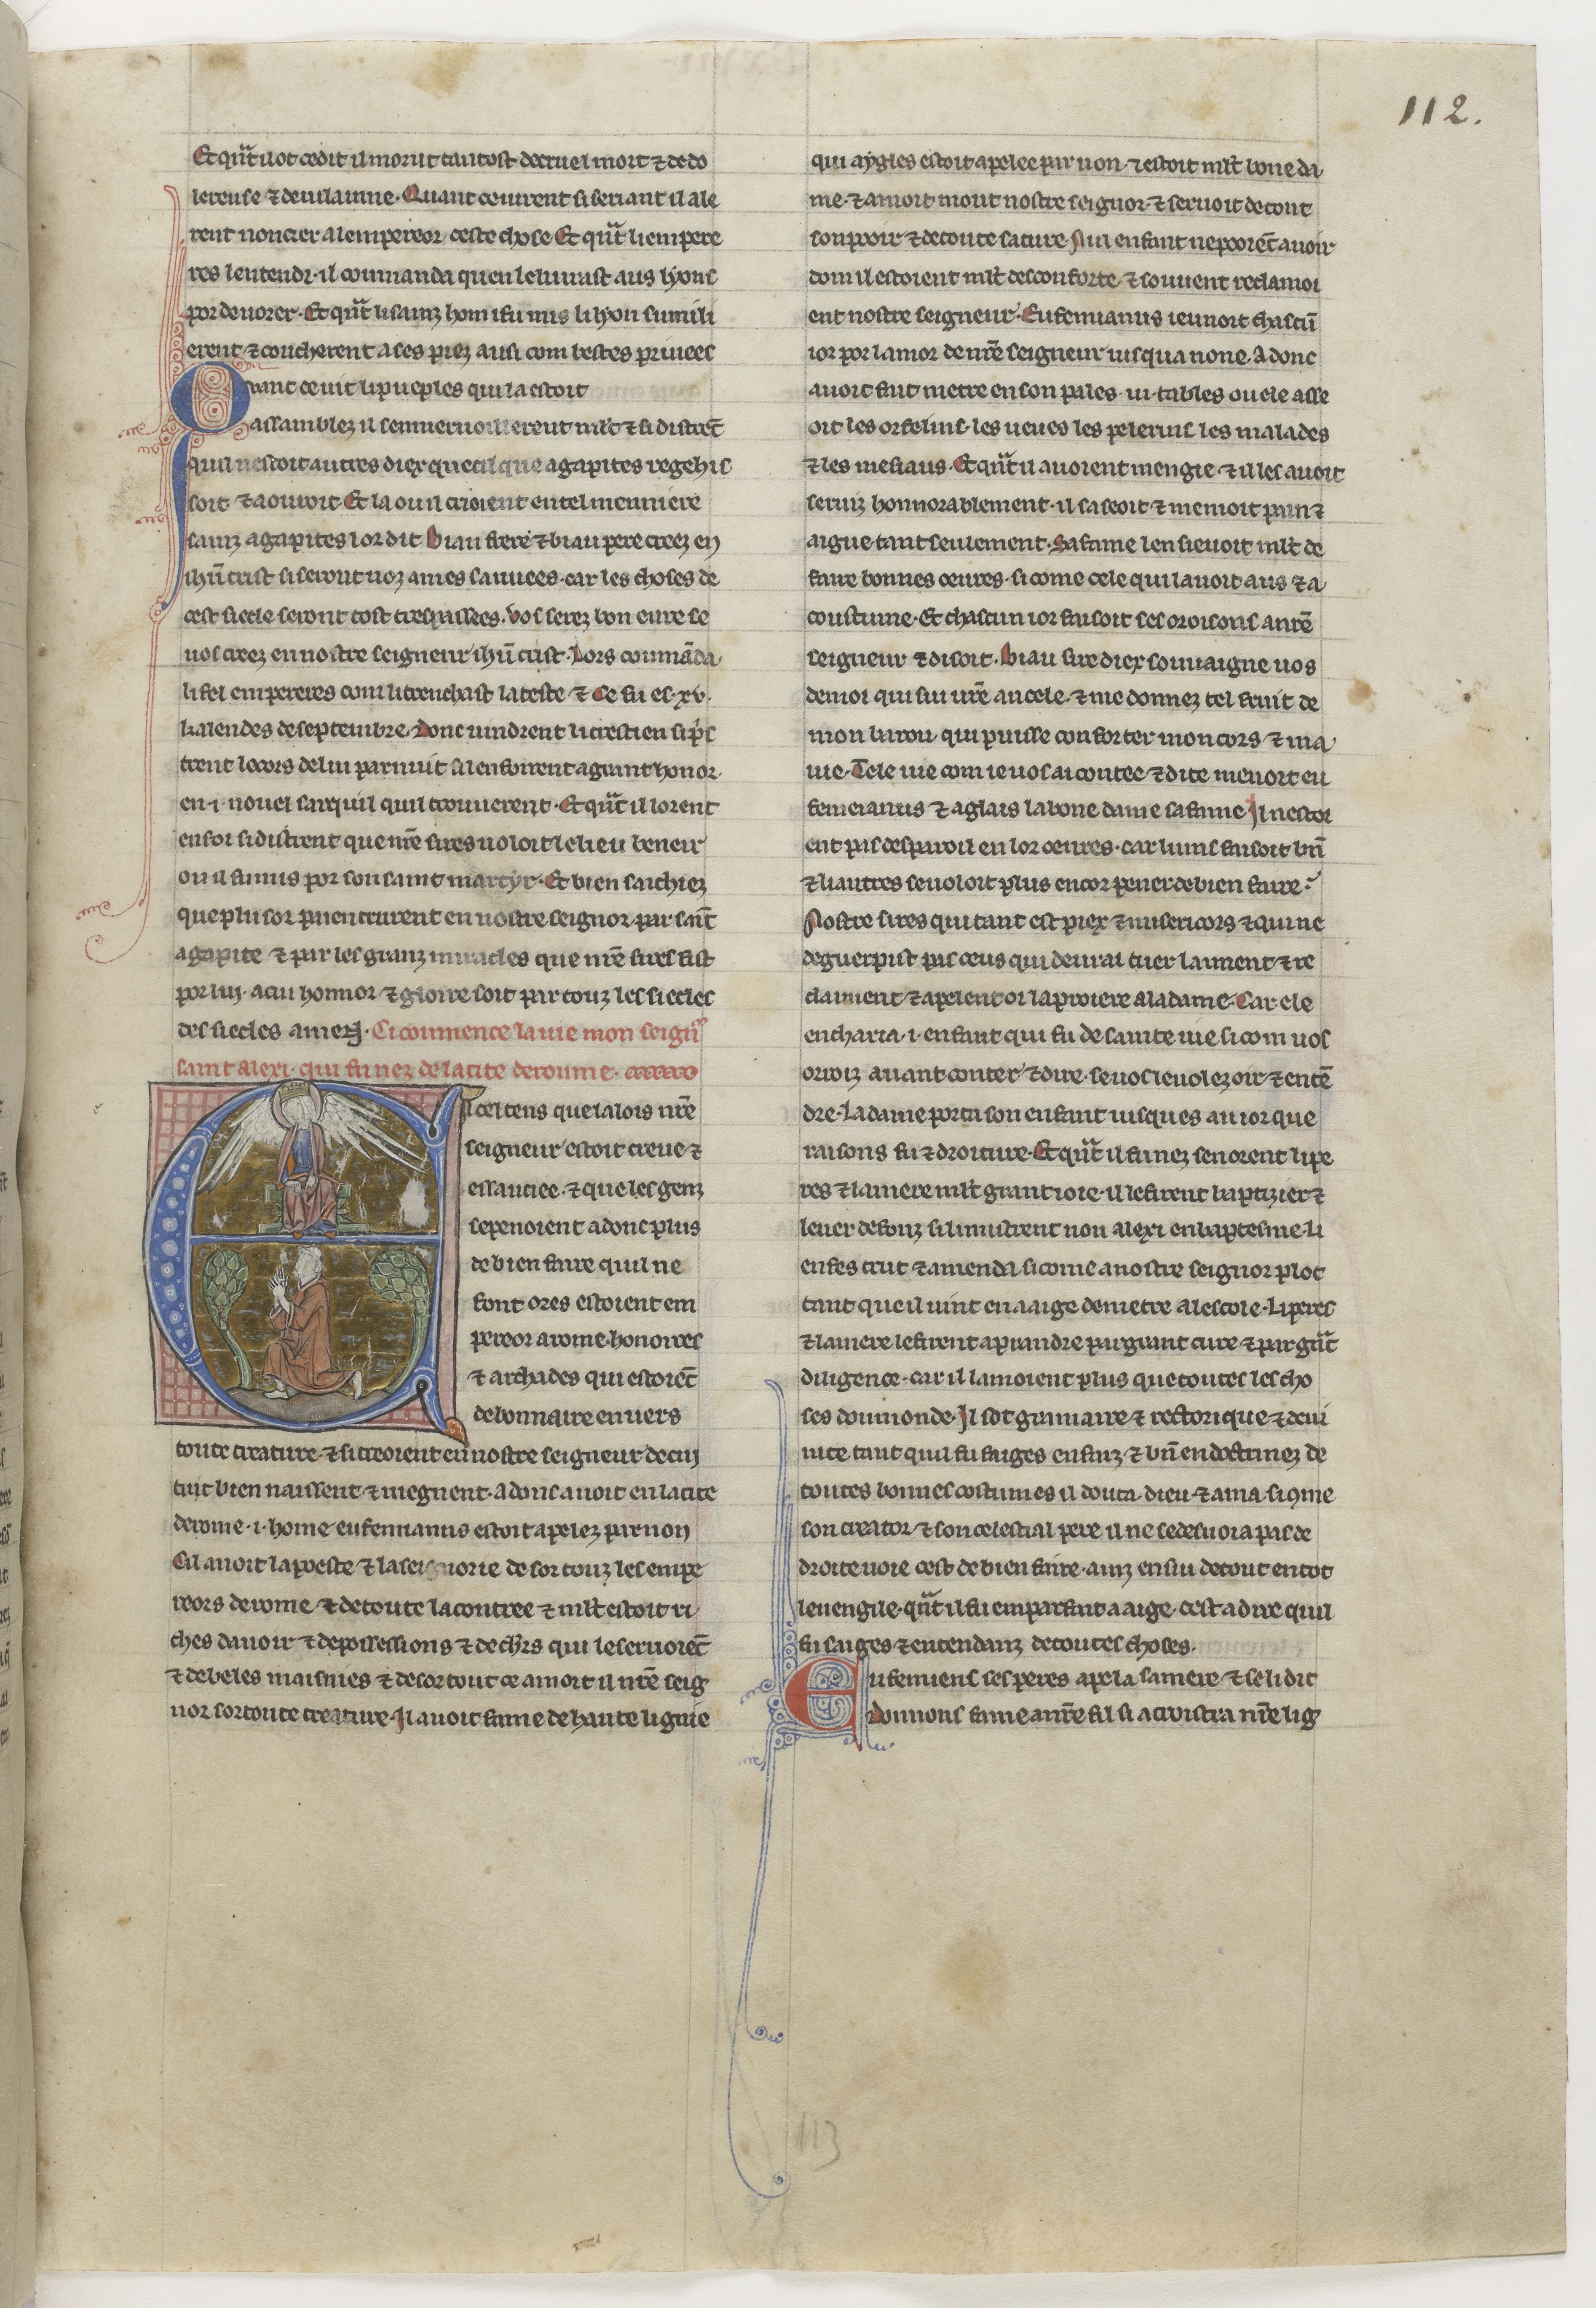 112.
Et qu̅t uot ce dit il morut tantost de cruel mort ⁊ de do
lereuse ⁊ de uilainne. Quant ce uirent si seriant il ale
rent noncier a lempereor ceste chose Et qu̅t li empere
res lentendi. il commanda quen le liurast aus lyons
por deuorer. Et qu̅t li sainz hom i fu mis li lyon sumili
erent ⁊ coucherent a ses piez ausi com bestes priuees
Quant ce uit li pueples qui la estoit
assamblez il senmeruoillierent ml̅t ⁊ si distre̅t
quil nestoit autres diex que cil que agapites regehis
soit ⁊ aouroit Et la ou il crioient en tel menniere
sainz agapites lor dit Biau frere ⁊ biau pere creez en
ihu̅ crist si seront uoz ames sauuees. car les choses de
cest siecle seront tost trespassees. Vos serez bon eure se
uos creez en nostre seigneur ihu̅ crist. Lors comma̅da
li fel empereres com li trenchast la teste ⁊ Ce fu es .xv.
kalendes de septembre. Donc uindrent li crestien si p̓s
trent le cors de lui par nuit si lenfoirent a grant honor.
en .i. nouel sarquil quil trouuerent. Et qu̅t il lorent
enfoi si distrent que nr̅e sires uoloit le lieu beneir
ou il fu mis por son saint martyr. Et bien saichiez
que plusor puen crurent en nostre seignor par sai̅t
agapite ⁊ par les granz miracles que nr̅e sires fist
por lui. a cui honnor ⁊ gloire soit par touz les siecles
des siecles amen. Ci commence la uie mon seign̅r
saint Alexi. qui fu nez de la cite de roume.
El cel tens que la lois nr̅e
seigneur estoit creue ⁊
essauciee. ⁊ que les genz
se penoient adonc plus
de bien faire quil ne
font ores estoient em
pereor a rome. honoires
⁊ archades qui estoie̅t
debonnaire enuers
toute creature. ⁊ si creoient en nostre seigneur de cui
tuit bien naissent ⁊ uiegnent. Adonc auoit en la cite
de rome .i. home eufemianus estoit apelez par non
Cil auoit la poeste ⁊ la seignorie de sor touz les empe
reors de rome ⁊ de toute la contree ⁊ ml̅t estoit ri
ches dauoir ⁊ de possessions ⁊ de ch̅rs qui le seruore̅t
⁊ de beles maisnies ⁊ de sor tout ce amoit il nr̅e seig
nor sor toute creature. Il auoit fame de haute lignie
qui aygles estoit apelee par non. ⁊ estoit ml̅t bone da
me. ⁊ amoit mout nostre seignor ⁊ seruoit de tout
son pooir ⁊ de toute sa cure. Nul enfant ne poore̅t auoir
dom il estoient ml̅t desconforte. ⁊ souuent reclamoi
ent nostre seigneur. Eufemianus ieunoit chascu̅
ior por lamor de nr̅e seigneur iusqua none. Adonc
auoit fait metre en son pales .iii. tables ou ele asse
oit les orfelins. les ueues les pelerins. les malades
⁊ les mesiaus. Et qu̅t il auoient mengie ⁊ il les auoit
seruiz honnorablement. il saseoit ⁊ menioit pain ⁊
aigue tant seulement. Sa fame len sieuoit ml̅t de
faire bonnes oeures. si come cele qui lauoit ans ⁊ a
coustume. Et chascun ior faisoit ses oroisons a nr̅e
seigneur ⁊ disoit. Biau sire diex souuaigne uos
de moi qui sui ur̅e ancele. ⁊ me donnez tel fruit de
mon baron qui puisse conforter mon cors ⁊ ma
uie. Tele uie com ie uos ai contee ⁊ dite menoit eu
femeianus ⁊ aglais la bone dame sa fame Il nestoi
ent pas despareil en lor oeures. car luns faisoit bn̅
⁊ li autres se uoloit plus encor pener de bien faire.
Nostre sires qui tant est piex ⁊ misericors ⁊ qui ne
deguerpist pas ceus qui deurai cuer laiment ⁊ re
claiment ⁊ apelent oi la proiere a la dame. Car ele
encharia .i. enfant qui fu de sainte uie si com uos
orroiz auant conter ⁊ dire. se uos le uolez oir ⁊ ente̅
dre. La dame porta son enfant iusques au ior que
raisons fu ⁊ droiture. Et qu̅t il fu nez se norent li pe
res ⁊ la mere ml̅t grant ioie. il le firent baptizier ⁊
leuer de fonz si li mistrent non alexi en baptesme. Li
enfes crut ⁊ amenda si come a nostre seignor plot
tant que il uint en aaige de metre a lescole. Li peres
⁊ la mere le firent apraindre par grant cure ⁊ par gra̅t
diligence. car il lamoient plus que toutes les cho
ses dou monde. Il sot gramaire ⁊ rectorique ⁊ deui
nite tant quil fu saiges enfanz ⁊ bn̅ endoctrinez de
toutes bonnes costumes il douta dieu ⁊ ama. si 9me
son creator ⁊ son celestial pere il ne se desuoia pas de
droite uoie cest de bien faire. ainz ensiui de tout en tot
leuengile. qu̅t il fu em parfait aaige. cest a dire quil
fu saiges ⁊ entendanz de toutes choses.
Eufemiens ses peres apela sa mere ⁊ se li dit
Donnons fame a nr̅e fil si acroistra nr̅e lig
113